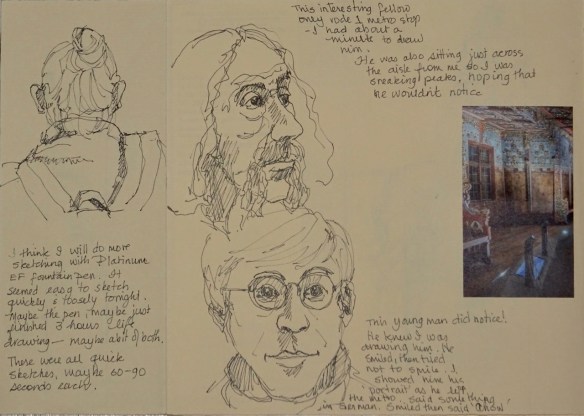 This interesting fellow
only rode 1 metro stop
- I had about a
minute to draw
him.
He was also sitting just across
the aisle from me so I was
sneaking peaks, hoping that
he wouldn't notice
I think I will do more
sketching with Platinum
EF fountain pen. It
seemed easy to sketch
quickly & loosely tonight.
Maybe the pen, maybe just
finished 3 hours life
drawing - maybe a bit of both.
These were all quick
sketches, maybe 60-90
seconds each.
This young man did notice!
He knew I was
drawing him. He
smiled, then tried
not to smile. I
showed him his
portrait as he left
the metro, said something
in German. Smiled then said "Ciao"